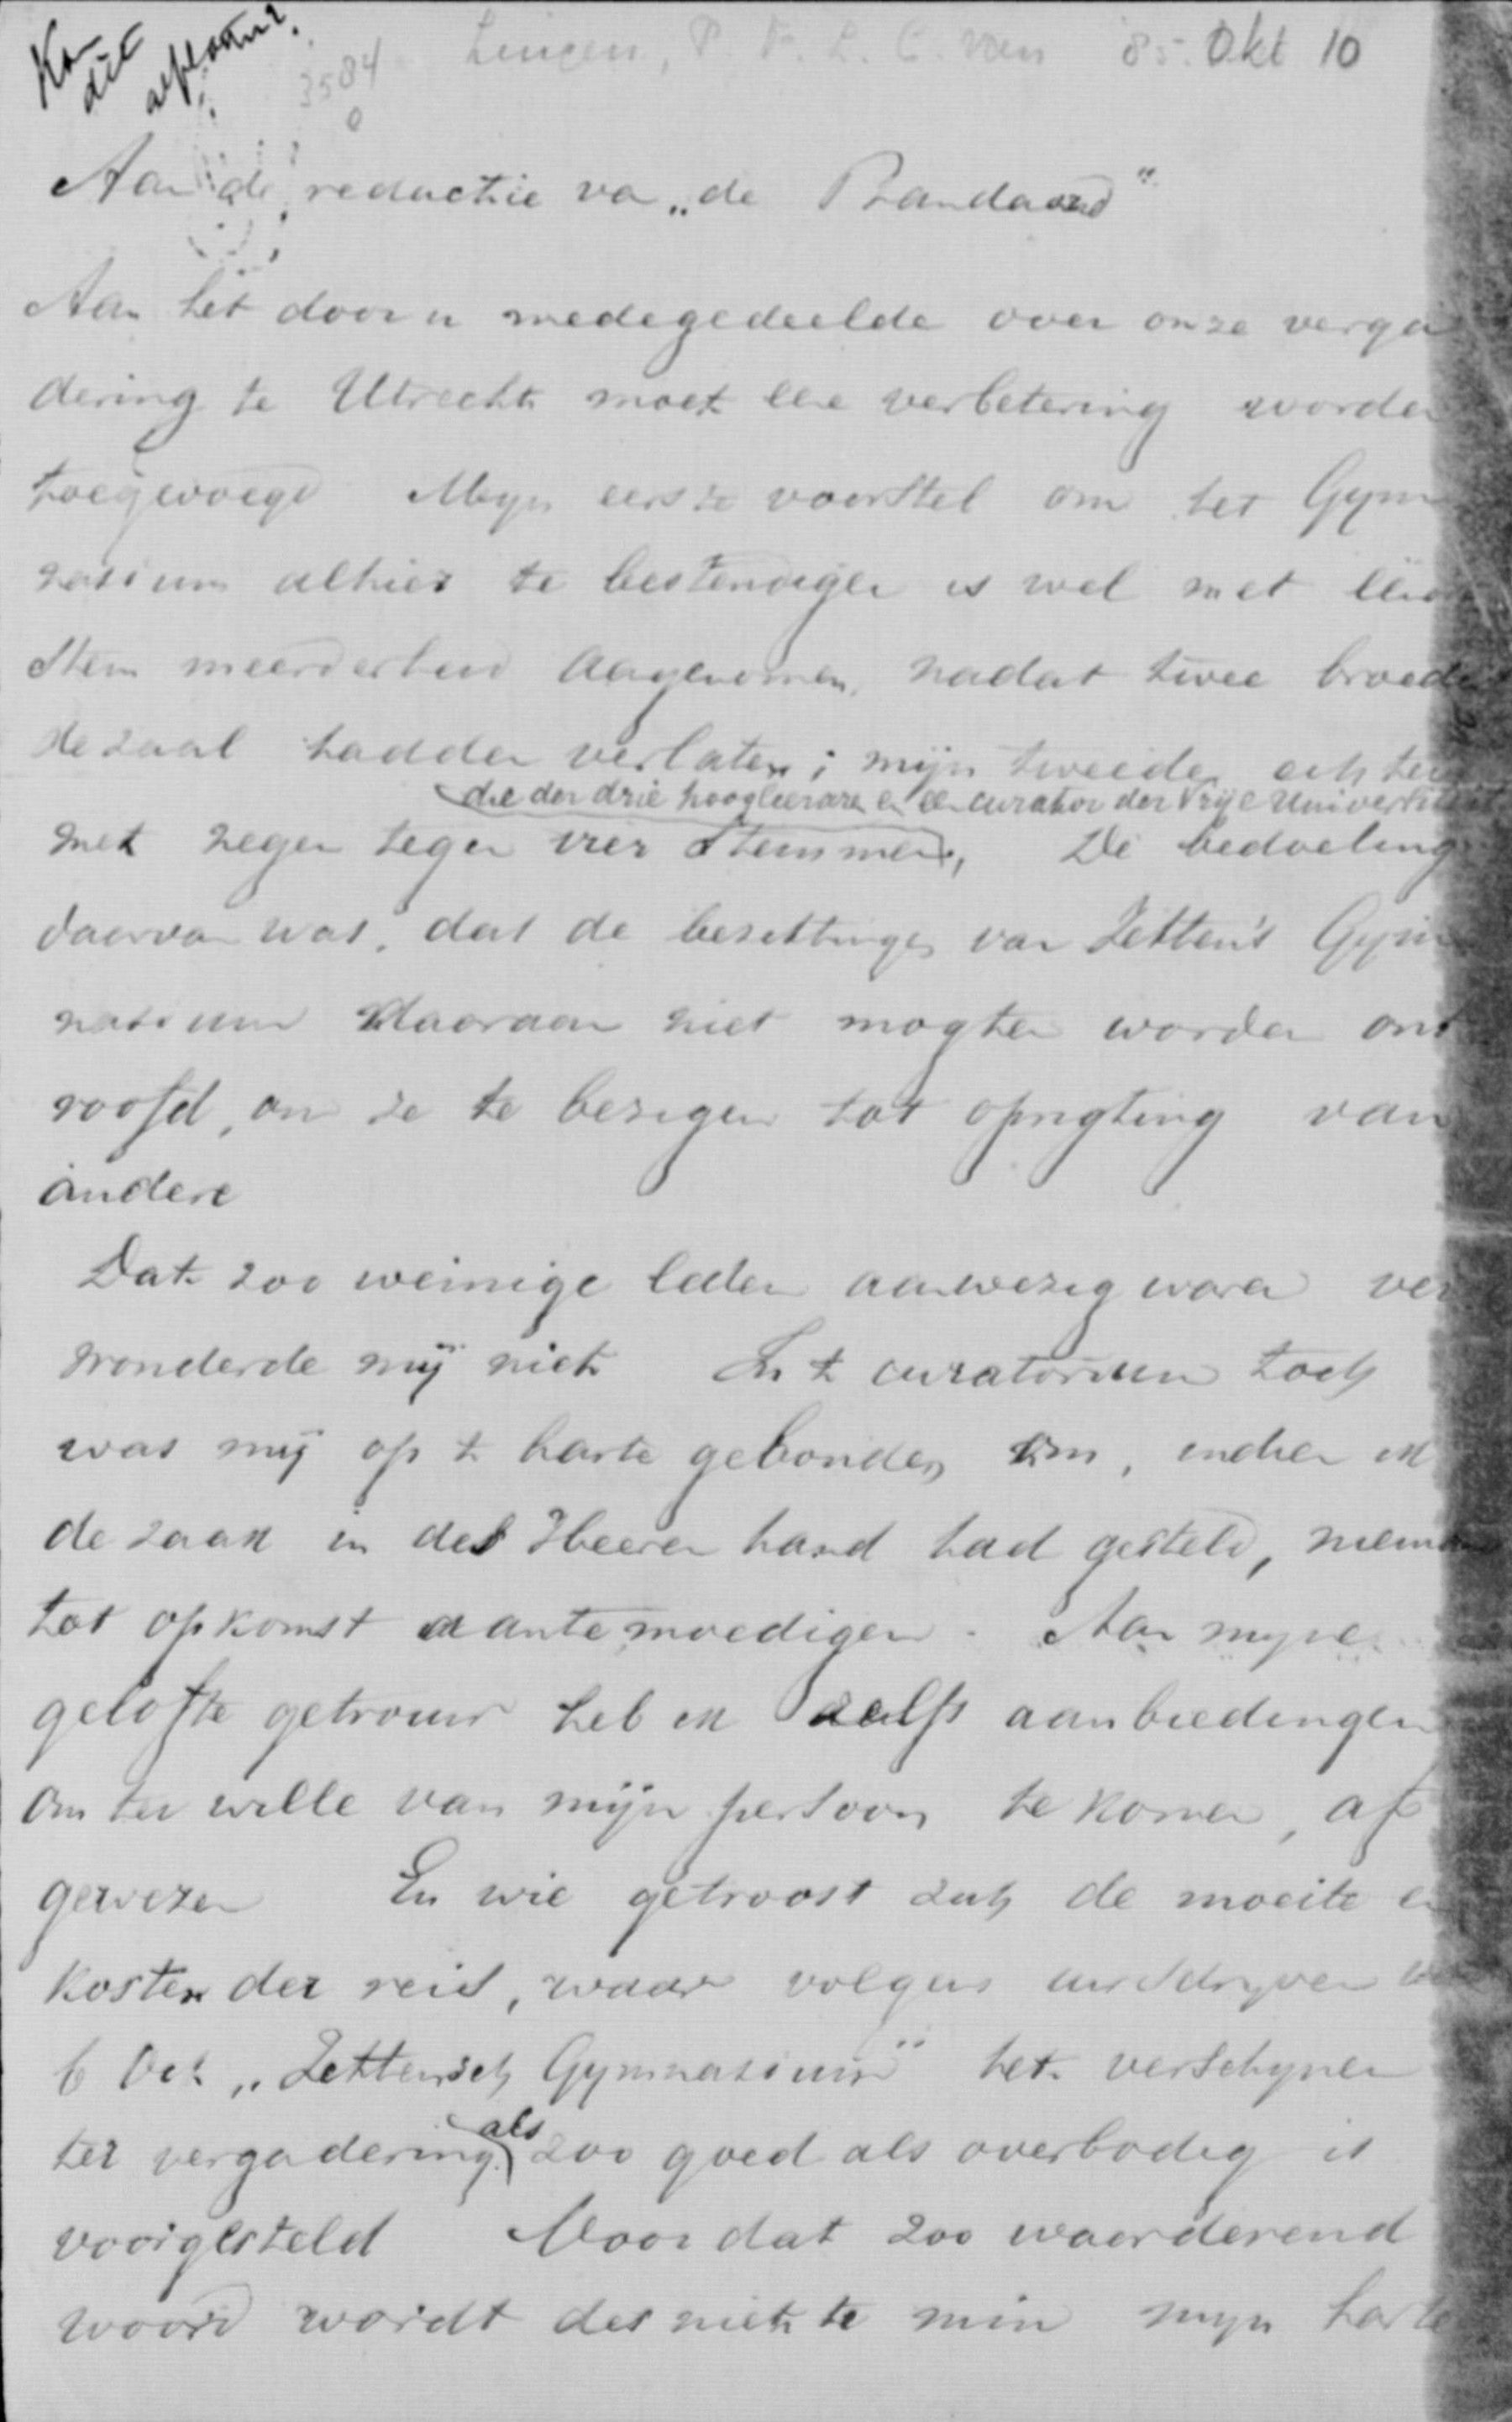 dit
3584
0
Lingen, P. F. L. C. van 85. Okt 10
Aan de redactie va „de Standaard"
Aan het door u medegedeelde over onze verga
dering te Utrecht moet eene verbetering worden
toegevoegd Mijn eerste voorstel om het Gym
nasium alhier te bestendigen is wel met
stem meerderheid aangenomen, nadat twee broeders
de zaal hadden verlaten; mijn tweede echter
die der drie hoogleeraren en een curator der Vrije Universiteit
met negen tegen vier stemmen, De bedoeling
daarvan was, dat de bezittingen van Zetten's Gym
nasium daaraan niet mogten worden ont
roofd, om ze te bezigen tot oprigting van
andere
Dat zoo weinige leden aanwezig waren ver
wonderde mij niet In 't curatorium toch
was mij op 't harte gebonden om, indien ik
de zaak in des Heeren hand had gesteld, niemand
tot opkomst aantemoedigen. Aan mijne
gelofte getrouw heb ik zelfs aanbiedingen
om ter wille van mijn persoon te komen, af
gewezen En wie getroost zich de moeite en
kosten der reis, waar volgens uw schrijven van
6 Oct „Zettensch Gymnasium" het verschijnen
ter vergadering als zoo goed als overbodig is
voorgesteld Voor dat zoo waarderend
woord wordt des niet te min mijn harte